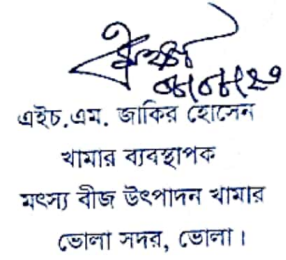 এইচ.এম. জাকির হোসেন
খামার ব্যবস্থাপক
মৎস্য বীজ উৎপাদন খামার
ভোলা সদর, ভোলা।